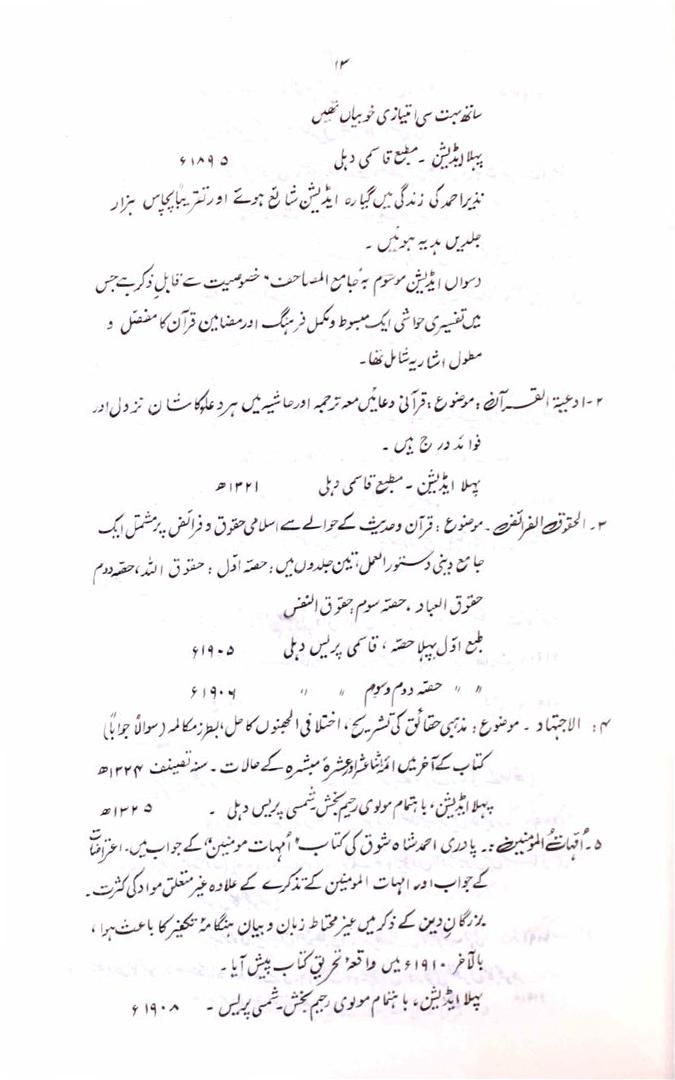 ۱۳
ساتھ بہت سی امتیازی خوبیاں تھیں
پہلا ایڈیشن ۔ مطبع قاسمی دہلی ۱۸۹۵ء
نذیر احمد کی زندگی میں گیارہ ایڈیشن شایع ہوئے اور تقریباً پچاس ہزار
جلدیں ہدیہ ہوئیں ۔
دسواں ایڈیشن موسوم بہ "جامع المصاحف" خصوصیت سے قابلِ ذکر ہے جس
میں تفسیری حواشی ایک مبسوط و مکمل فرہنگ اور مضامین قرآن کا مفصّل و
مطول اشاریہ شامل تھا۔
۲۔ ادعیۃ القرآن : موضوع : قرآنی دعائیں معہ ترجمہ اور حاشیہ میں ہر دعا کا شان نزول اور
فوائد درج ہیں ۔
پہلا ایڈیشن ۔ مطبع قاسمی دہلی ۱۳۲۱ھ
۳۔ الحقوق الفرائض ۔ موضوع : قرآن و حدیث کے حوالے سے اسلامی حقوق و فرائض پر مشتمل ایک
جامع دینی دستور العمل، تین جلدوں میں : حصہ اوّل : حقوق اللہ ، حصہ دوم
حقوق العباد ، حصہ سوم : حقوق النفس
طبع اوّل پہلا حصہ ، قاسمی پریس دہلی ۱۹۰۵ء
〃 〃 حصہ دوم و سوم 〃 〃 ۱۹۰۶ء
۴ : الاجتہاد ۔ موضوع : مذہبی حقائق کی تشریح ، اختلافی الجھنوں کا حل ، بطرز مکالمہ (سوالاً جواباً)
کتاب کے آخر میں ائمہ اثنا عشر اور عشرۂ مبشرہ کے حالات ۔ سنہ تصنیف ۱۳۲۴ھ
پہلا ایڈیشن ، باہتمام مولوی رحیم بخش ۔ شمسی پریس دہلی ۔ ۱۳۲۵ھ
۵۔ اُمّہاتُ المؤمنین :۔ پادری احمد شاہ شوق کی کتاب "اُمہات مومنین" کے جواب میں ۔ اعتراضات
کے جواب اور امہات المومنین کے تذکرے کے علاوہ غیر متعلق مواد کی کثرت ۔
بزرگانِ دین کے ذکر میں غیر محتاط زبان و بیان ہنگامۂ تکفیر کا باعث ہوا ،
بالآخر ۱۹۱۰ء میں واقعۂ تحریقِ کتاب پیش آیا ۔
پہلا ایڈیشن ، باہتمام مولوی رحیم بخش ۔ شمسی پریس ۔ ۱۹۰۸ء